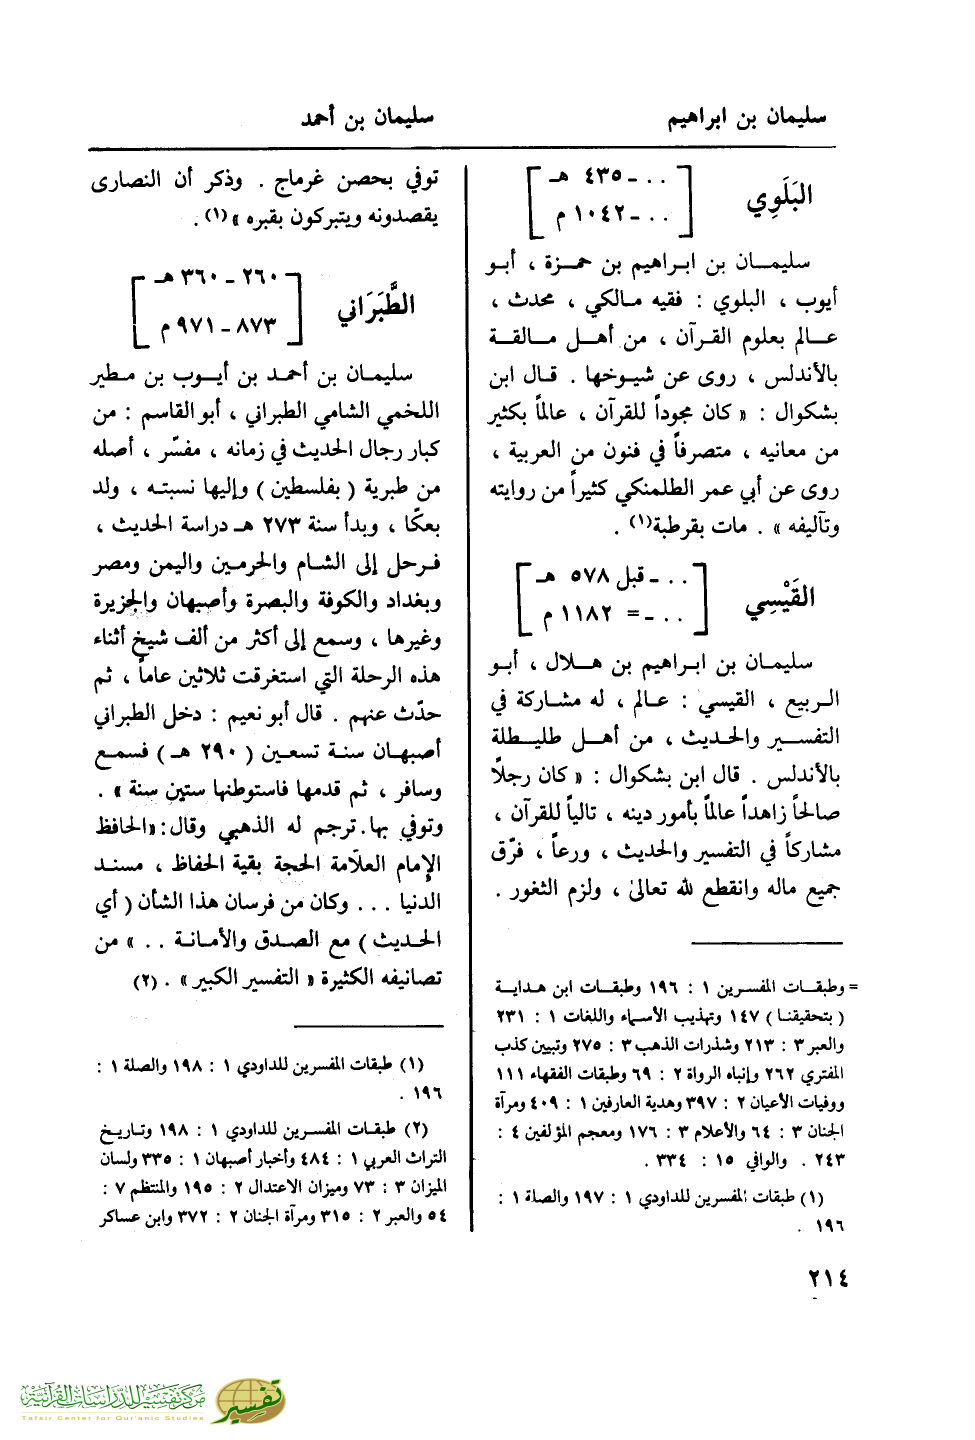 سليمان بن ابراهيم
سليمان بن أحمد
البَلَوِي
.. ـ ٤٣٥ هـ
.. ـ ١٠٤٢ م
سليمـان بن ابـراهيم بن حمـزة ، أبـو
أيوب ، البلوي : فقيه مـالكي ، محدث ،
عـالم بعلوم القـرآن ، من أهـل مـالقـة
بالأندلس ، روى عن شيـوخها . قـال ابن
بشكوال : « كان مجوداً للقرآن ، عالماً بكثير
من معانيه ، متصرفاً في فنون من العربية ،
روى عن أبي عمر الطلمنكي كثيراً من روايته
وتآليفه » . مات بقرطبة(١) .
القَيْسِي
.. ـ قبل ٥٧٨ هـ
.. ـ = ١١٨٢ م
سليمـان بن ابـراهيم بن هـلال ، أبـو
الـربيع ، القيسي : عـالم ، له مشاركة في
التفسـير والحـديث ، من أهـل طليـطلة
بالأندلس . قال ابن بشكوال : « كان رجلاً
صالحاً زاهداً عالماً بأمور دينه ، تالياً للقرآن ،
مشاركاً في التفسير والحديث ، ورعاً ، فرّق
جميع ماله وانقطع لله تعالىٰ ، ولزم الثغور .
= وطبقـات المفسرين ١ : ١٩٦ وطبقـات ابن هـدايـة
( بتحقيقنـا ) ١٤٧ وتهذيب الأسمـاء واللغات ١ : ٢٣١
والعبر ٣ : ٢١٣ وشذرات الذهب ٣ : ٢٧٥ وتبيين كذب
المفتري ٢٦٢ وإنباه الرواة ٢ : ٦٩ وطبقات الفقهاء ١١١
ووفيات الأعيان ٢ : ٣٩٧ وهدية العارفين ١ : ٤٠٩ ومرآة
الجنان ٣ : ٦٤ والأعلام ٣ : ١٧٦ ومعجم المؤلفين ٤ :
٢٤٣ . والوافي ١٥ : ٣٣٤ .
(١) طبقات المفسرين للداودي ١ : ١٩٧ والصلة ١ :
١٩٦ .
توفي بحصن غرماج . وذكر أن النصارى
يقصدونه ويتبركون بقبره »(١) .
الطَّبَرَاني
٢٦٠ ـ ٣٦٠ هـ
٨٧٣ ـ ٩٧١ م
سليمـان بن أحمـد بن أيـوب بن مـطير
اللخمي الشامي الطبراني ، أبو القاسم : من
كبار رجال الحديث في زمانه ، مفسّر ، أصله
من طبرية ( بفلسطين ) وإليها نسبتـه ، ولد
بعكّا ، وبدأ سنة ٢٧٣ هـ دراسة الحديث ،
فـرحل إلى الشـام والحرمـين واليمن ومصر
وبغداد والكوفة والبصرة وأصبهان والجزيرة
وغيرها ، وسمع إلى أكثر من ألف شيخ أثناء
هذه الرحلة التي استغرقت ثلاثين عاماً ، ثم
حدّث عنهم . قال أبو نعيم : دخل الطبراني
أصبهـان سنـة تسعـين ( ٢٩٠ هـ ) فسمـع
وسافر ، ثم قدمها فاستوطنها ستين سنة » .
وتوفي بها. ترجم له الذهبي وقال: «الحافظ
الإمام العلاّمة الحجة بقية الحفاظ ، مسنـد
الدنيا ... وكان من فرسان هذا الشأن ( أي
الحـديث ) مع الصـدق والأمـانـة .. » من
تصانيفه الكثيرة « التفسير الكبير » . (٢)
(١) طبقات المفسرين للداودي ١ : ١٩٨ والصلة ١ :
١٩٦ .
(٢) طبقات المفسـرين للداودي ١ : ١٩٨ وتـاريـخ
التراث العربي ١ : ٤٨٤ وأخبار أصبهان ١ : ٣٣٥ ولسان
الميزان ٣ : ٧٣ وميزان الاعتدال ٢ : ١٩٥ والمنتظم ٧ :
٥٤ والعبر ٢ : ٣١٥ ومرآة الجنان ٢ : ٣٧٢ وابن عساكر
٢١٤
مركز تفسير للدراسات القرآنية
Tafsir Center for Qur'anic Studies
تفسير